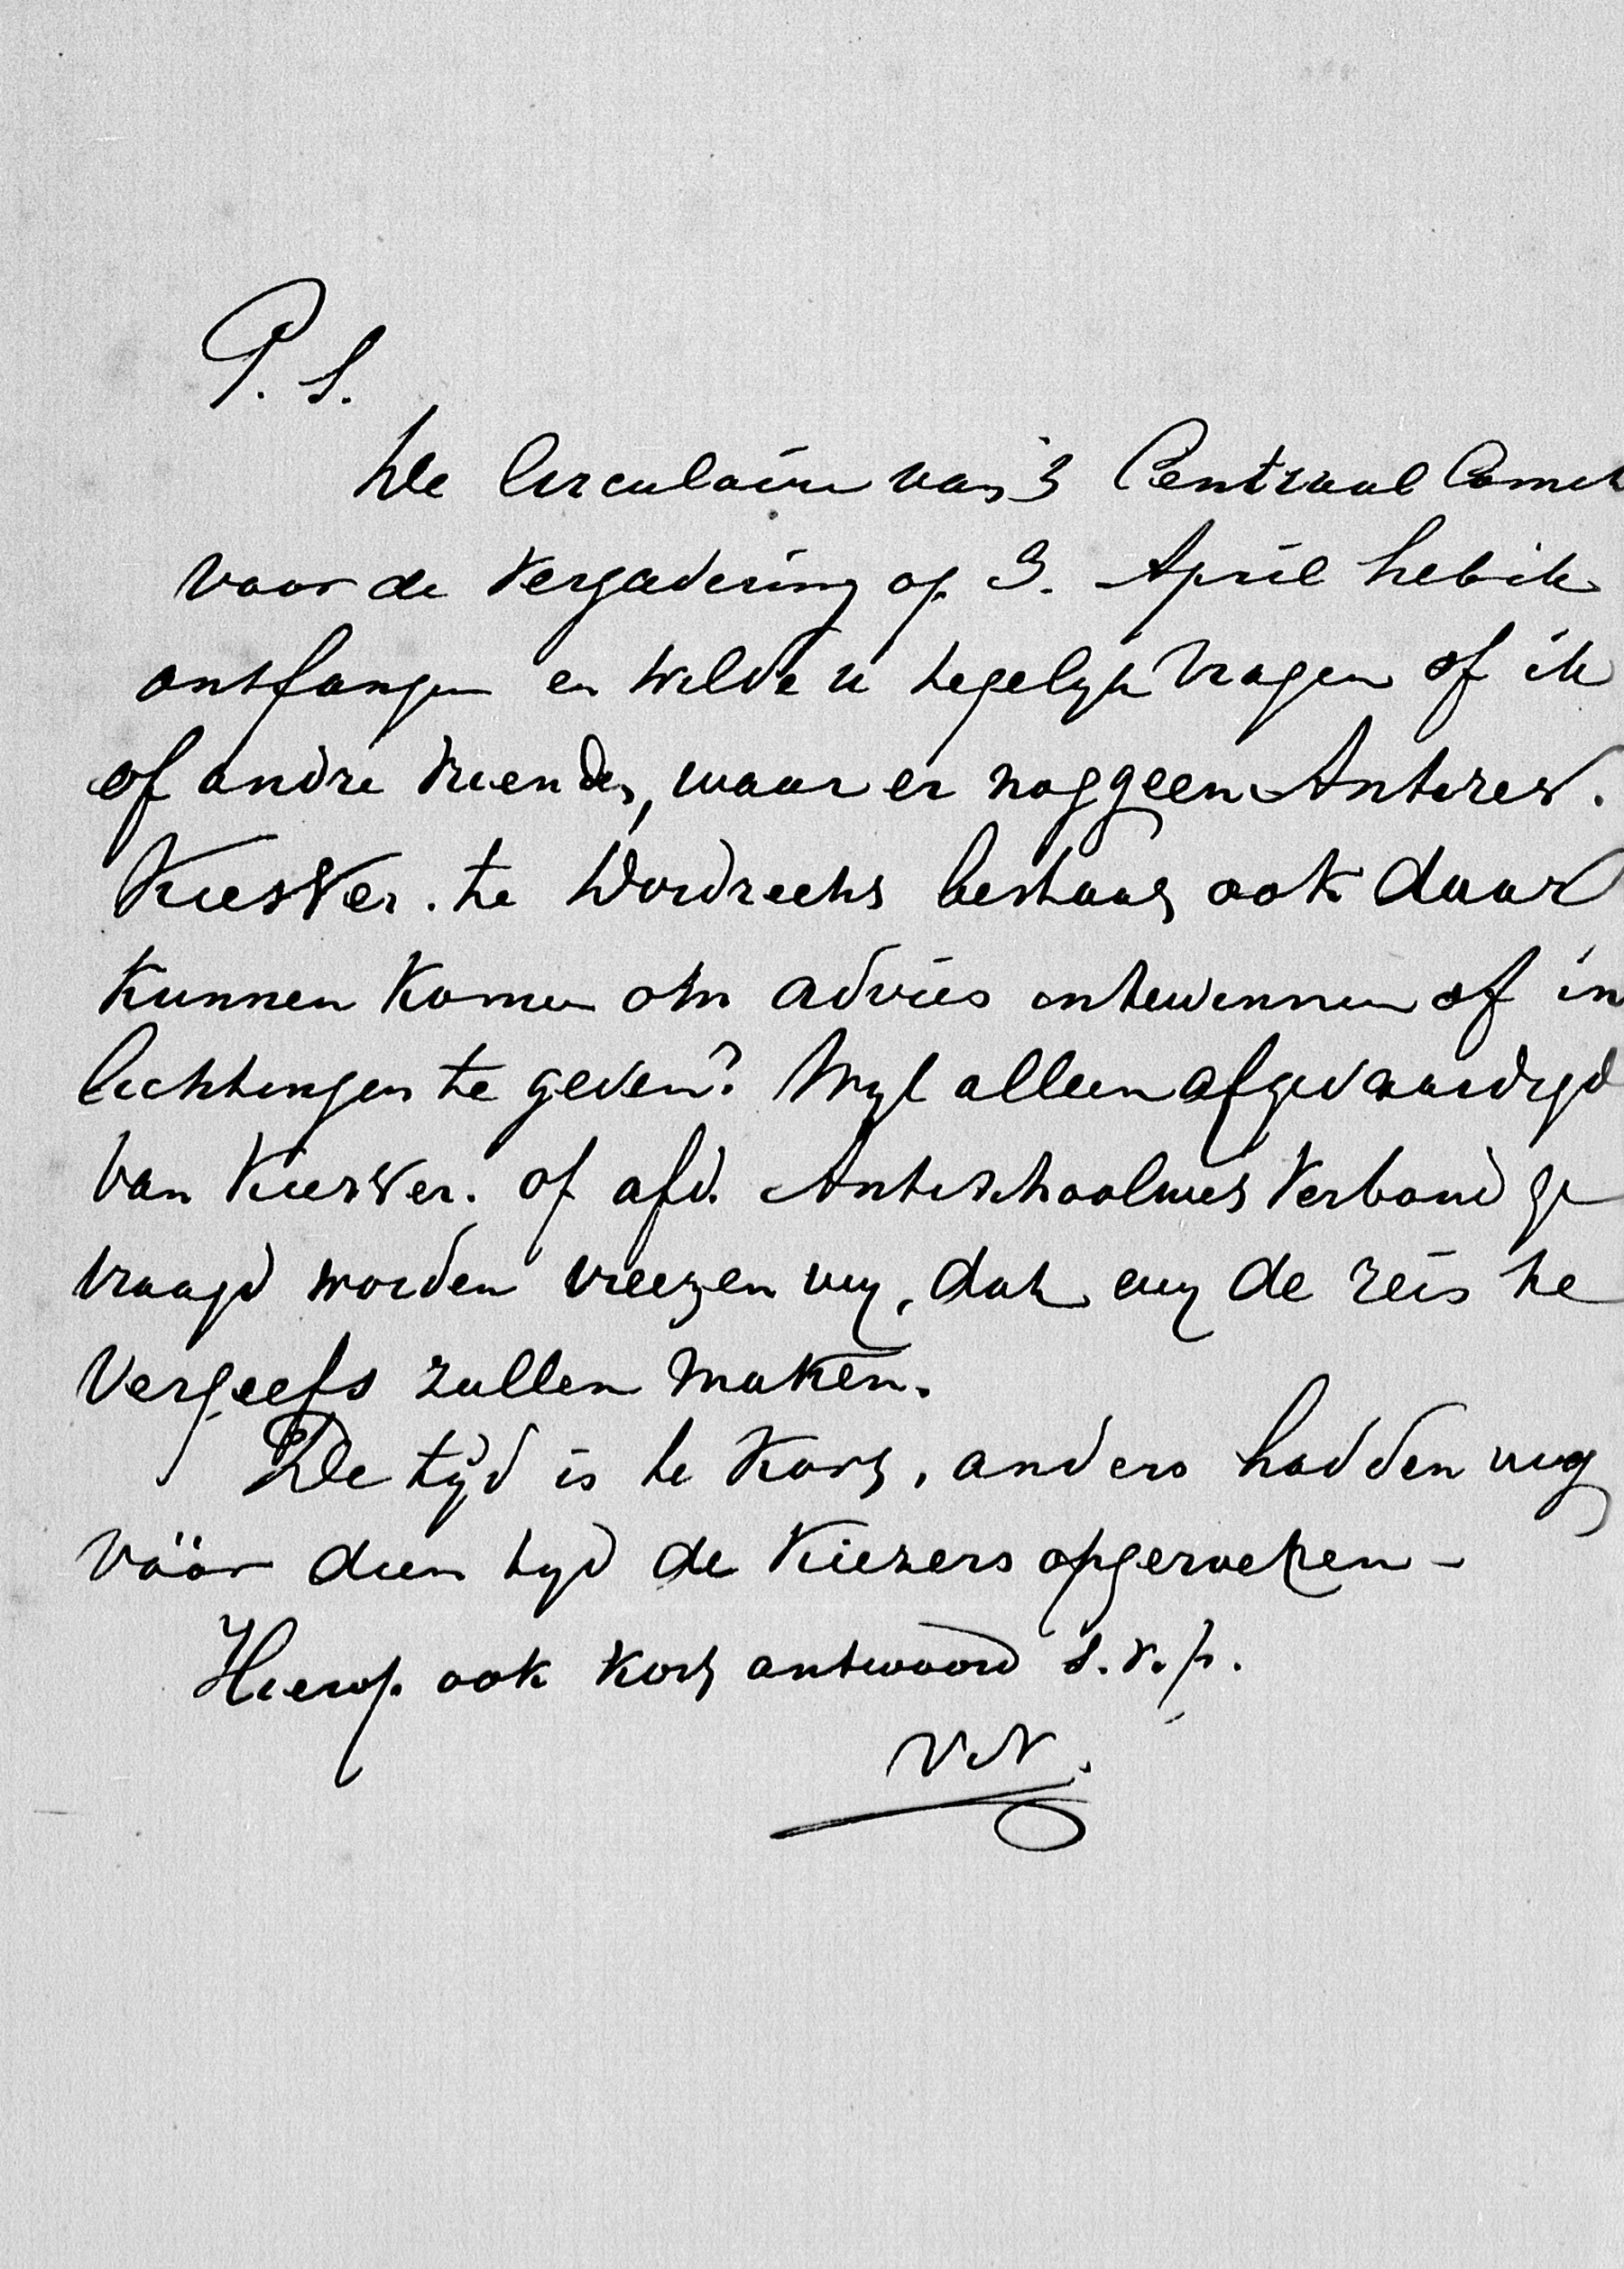 P. S.
De Circulaire van 't Centraal Comit
voor de vergadering op 3. April heb ik
ontfangen en wilde u tegelyk vragen of ik
of andre vrienden, waar er nog geen Antirev.
KiesVer. te Dordrecht bestaat ook daar
kunnen komen om advies intewinnen of in
lichtingen te geven? Wyl alleen afgevaardigd
van KiesVer. of afd. Antischoolwet Verbond ge
vraagd worden vreezen wy, dat wy de reis te
vergeefs zullen maken.
De tyd is te kort, anders hadden wy
vóór dien tyd de Kiezers opgeroepen -
Hierop ook kort antwoord s.v.p.
VN.